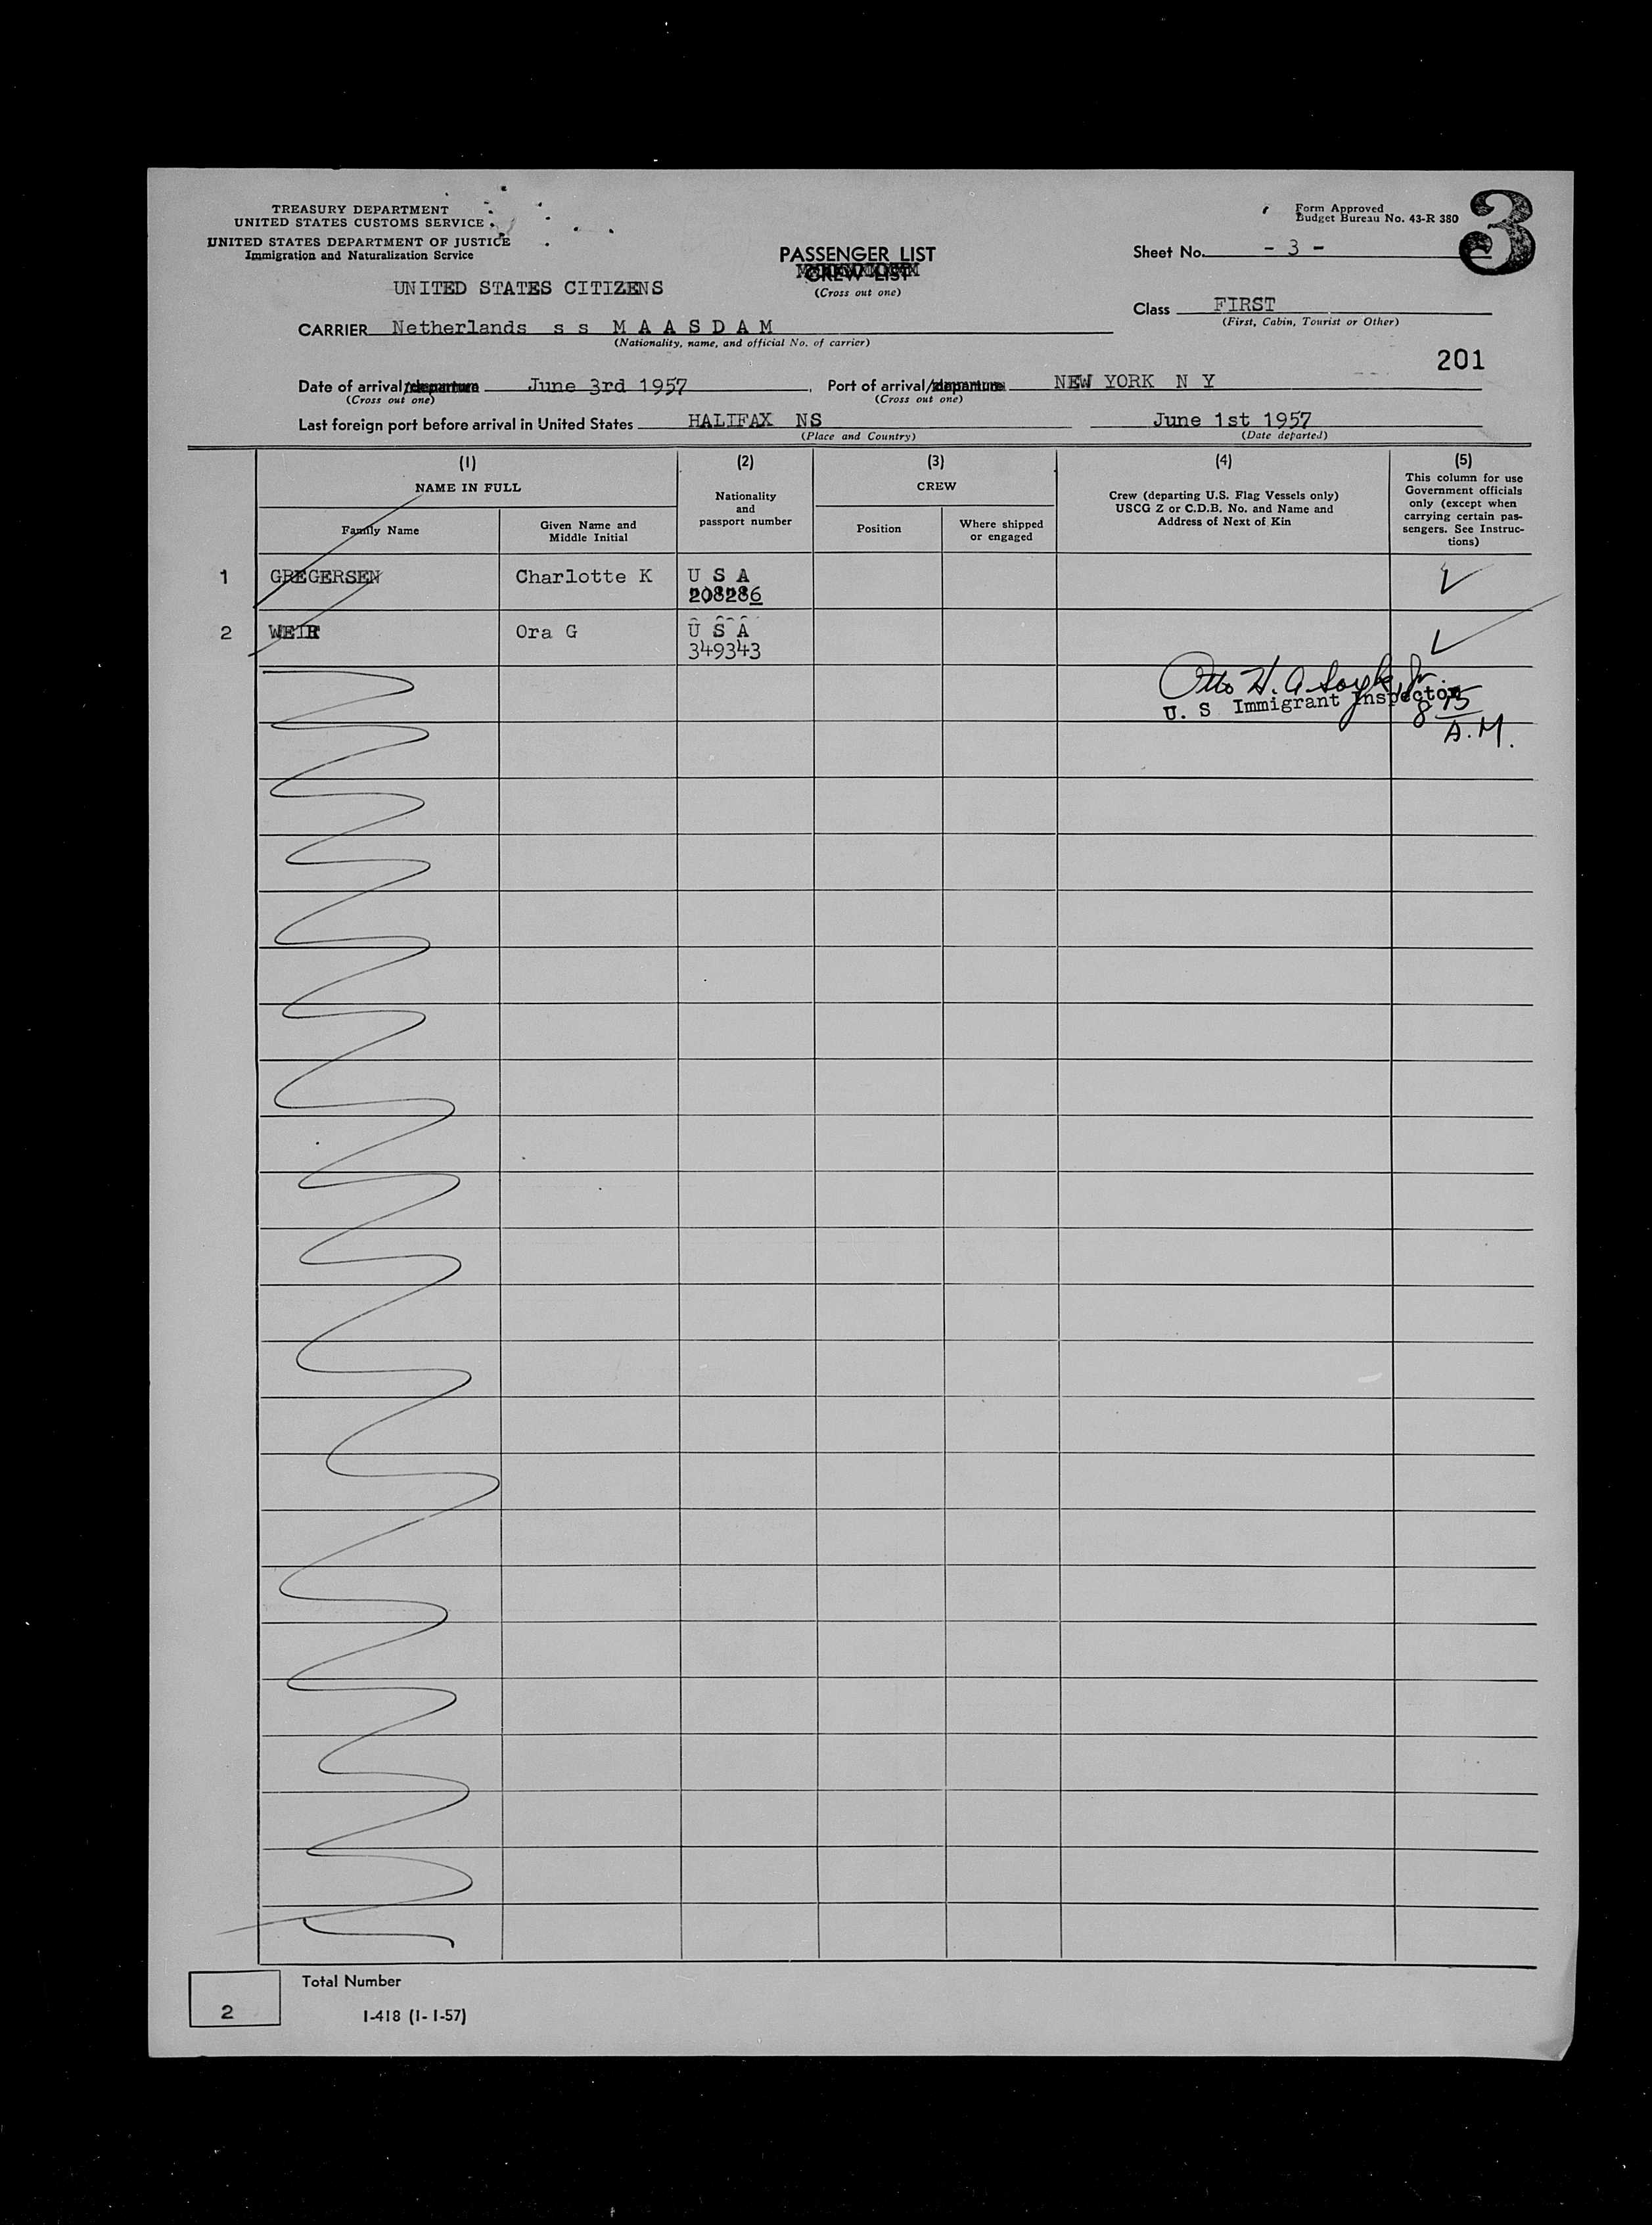 TREASURY DEPARTMENT
UNITED STATES CUSTOMS SERVICE
UNITED STATES DEPARTMENT OF JUSTICE
Immigration and Naturalization Service
UNITED STATES CITIZENS
PASSENGER LIST
CREW LIST
(Cross out one)
Form Approved
Budget Bureau No. 43-R 380
3
Sheet No. - 3 -
Class FIRST
(First, Cabin, Tourist or Other)
CARRIER Netherlands s s M A A S D A M
(Nationality, name, and official No. of carrier)
201
Date of arrival/departure June 3rd 1957, Port of arrival/departure NEW YORK N Y
(Cross out one) (Cross out one)
Last foreign port before arrival in United States HALIFAX NS June 1st 1957
(Place and Country) (Date departed)
(1) (2) (3) (4) (5)
NAME IN FULL
Family Name
Given Name and
Middle Initial
Nationality
and
passport number
CREW
Position
Where shipped
or engaged
Crew (departing U.S. Flag Vessels only)
USCG Z or C.D.B. No. and Name and
Address of Next of Kin
This column for use
Government officials
only (except when
carrying certain pas-
sengers. See Instruc-
tions)
1 GREGERSEN Charlotte K U S A
208286
2 WEIR Ora G U S A
349343
Otto H. A
U. S Immigrant Inspector
A.M.
Total Number
2
I-418 (1-1-57)